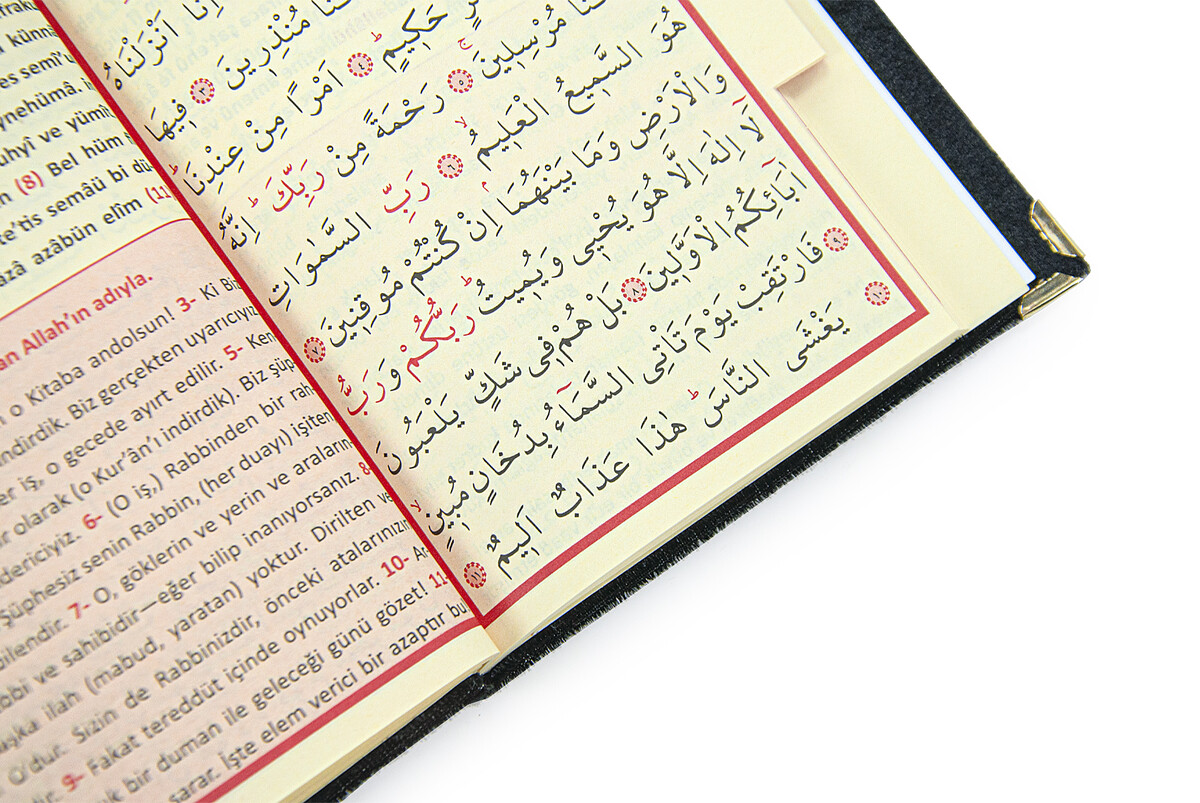 اِنَّا اَنْزَلْنَاهُ
مُنْذِرِينَ ﴿٣﴾ فِيهَا
حَكِيمٍ ﴿٤﴾ اَمْرًا مِنْ عِنْدِنَا
مُرْسِلِينَ ﴿٥﴾ رَحْمَةً مِنْ رَبِّكَ اِنَّهُ
هُوَ السَّمِيعُ الْعَلِيمُ ﴿٦﴾ رَبِّ السَّمٰوَاتِ
وَالْاَرْضِ وَمَا بَيْنَهُمَا اِنْ كُنْتُمْ مُوقِنِينَ ﴿٧﴾
لَٓا اِلٰهَ اِلَّا هُوَ يُحْيٖى وَيُمِيتُ رَبُّكُمْ وَرَبُّ
اٰبَٓائِكُمُ الْاَوَّلِينَ ﴿٨﴾ بَلْ هُمْ فِى شَكٍّ يَلْعَبُونَ
﴿٩﴾ فَارْتَقِبْ يَوْمَ تَاْتِى السَّمَٓاءُ بِدُخَانٍ مُبِينٍ
﴿١٠﴾ يَغْشَى النَّاسَ هٰذَا عَذَابٌ اَلِيمٌ ﴿١١﴾
künnâ
es semî'u
ynehümâ.
uhyî ve yümît
(8) Bel hüm
te'tis semâü bi dü
azâ azâbün elîm (11)
an Allah'ın adıyla.
o Kitaba andolsun! 3- Ki Biz
ndirdik. Biz gerçekten uyarıcıyız
er iş, o gecede ayırt edilir. 5- Ken
ir olarak (o Kur'ân'ı indirdik). Biz şüp
dericiyiz. 6- (O iş,) Rabbinden bir rah
Şüphesiz senin Rabbin, (her duayı) işiten
bilendir. 7- O, göklerin ve yerin ve araların
bbi ve sahibidir—eğer bilip inanıyorsanız. 8-
aşka ilah (mabud, yaratan) yoktur. Dirilten ve
O'dur. Sizin de Rabbinizdir, önceki atalarınızın
9- Fakat tereddüt içinde oynuyorlar. 10- Ar
k bir duman ile geleceği günü gözet! 11-
sarar. İşte elem verici bir azaptır bu